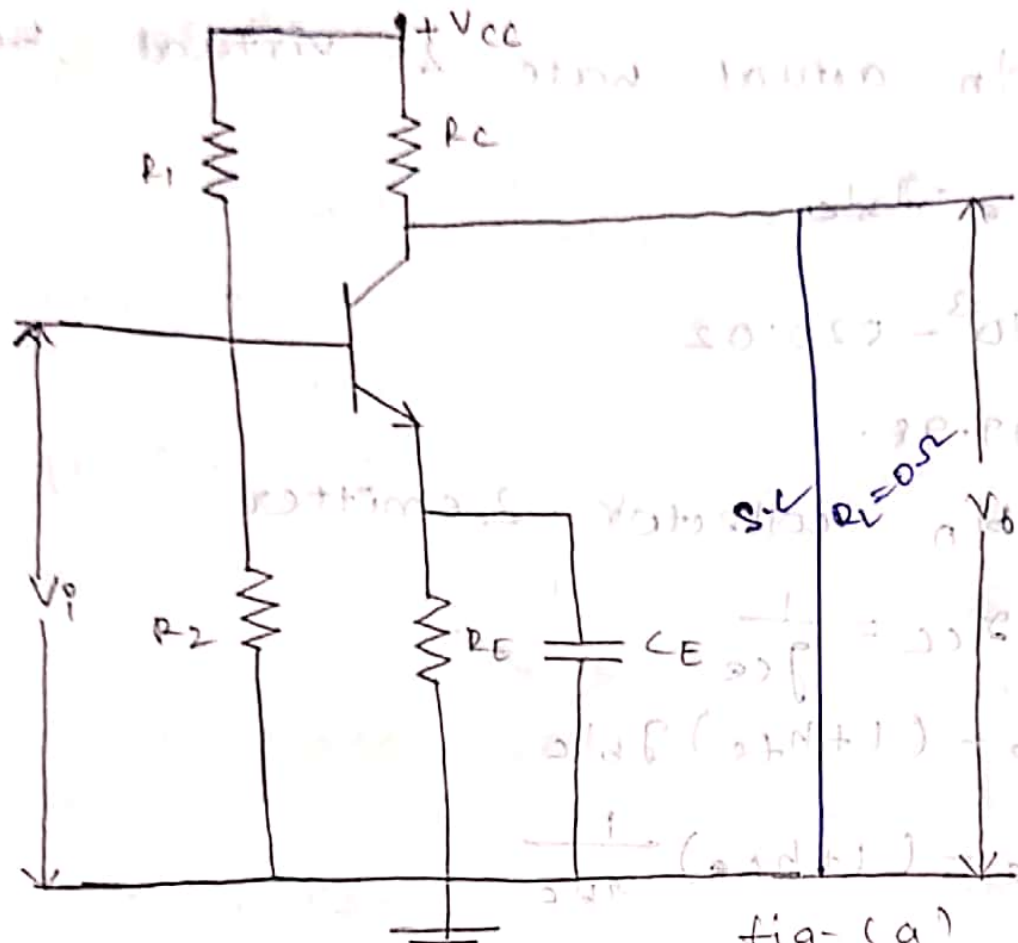 + Vcc
R1
Rc
Vi
R2
RE
CE
S.C
RL=0Ω
V0
fig-(a)